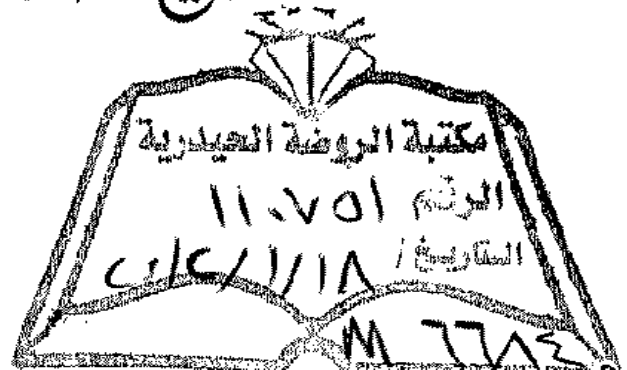 مكتبة الروضة الحيدرية
الرقم ١١٠٧٥١
التاريخ / ١٨ / ١ /
M ٦٦٨٤